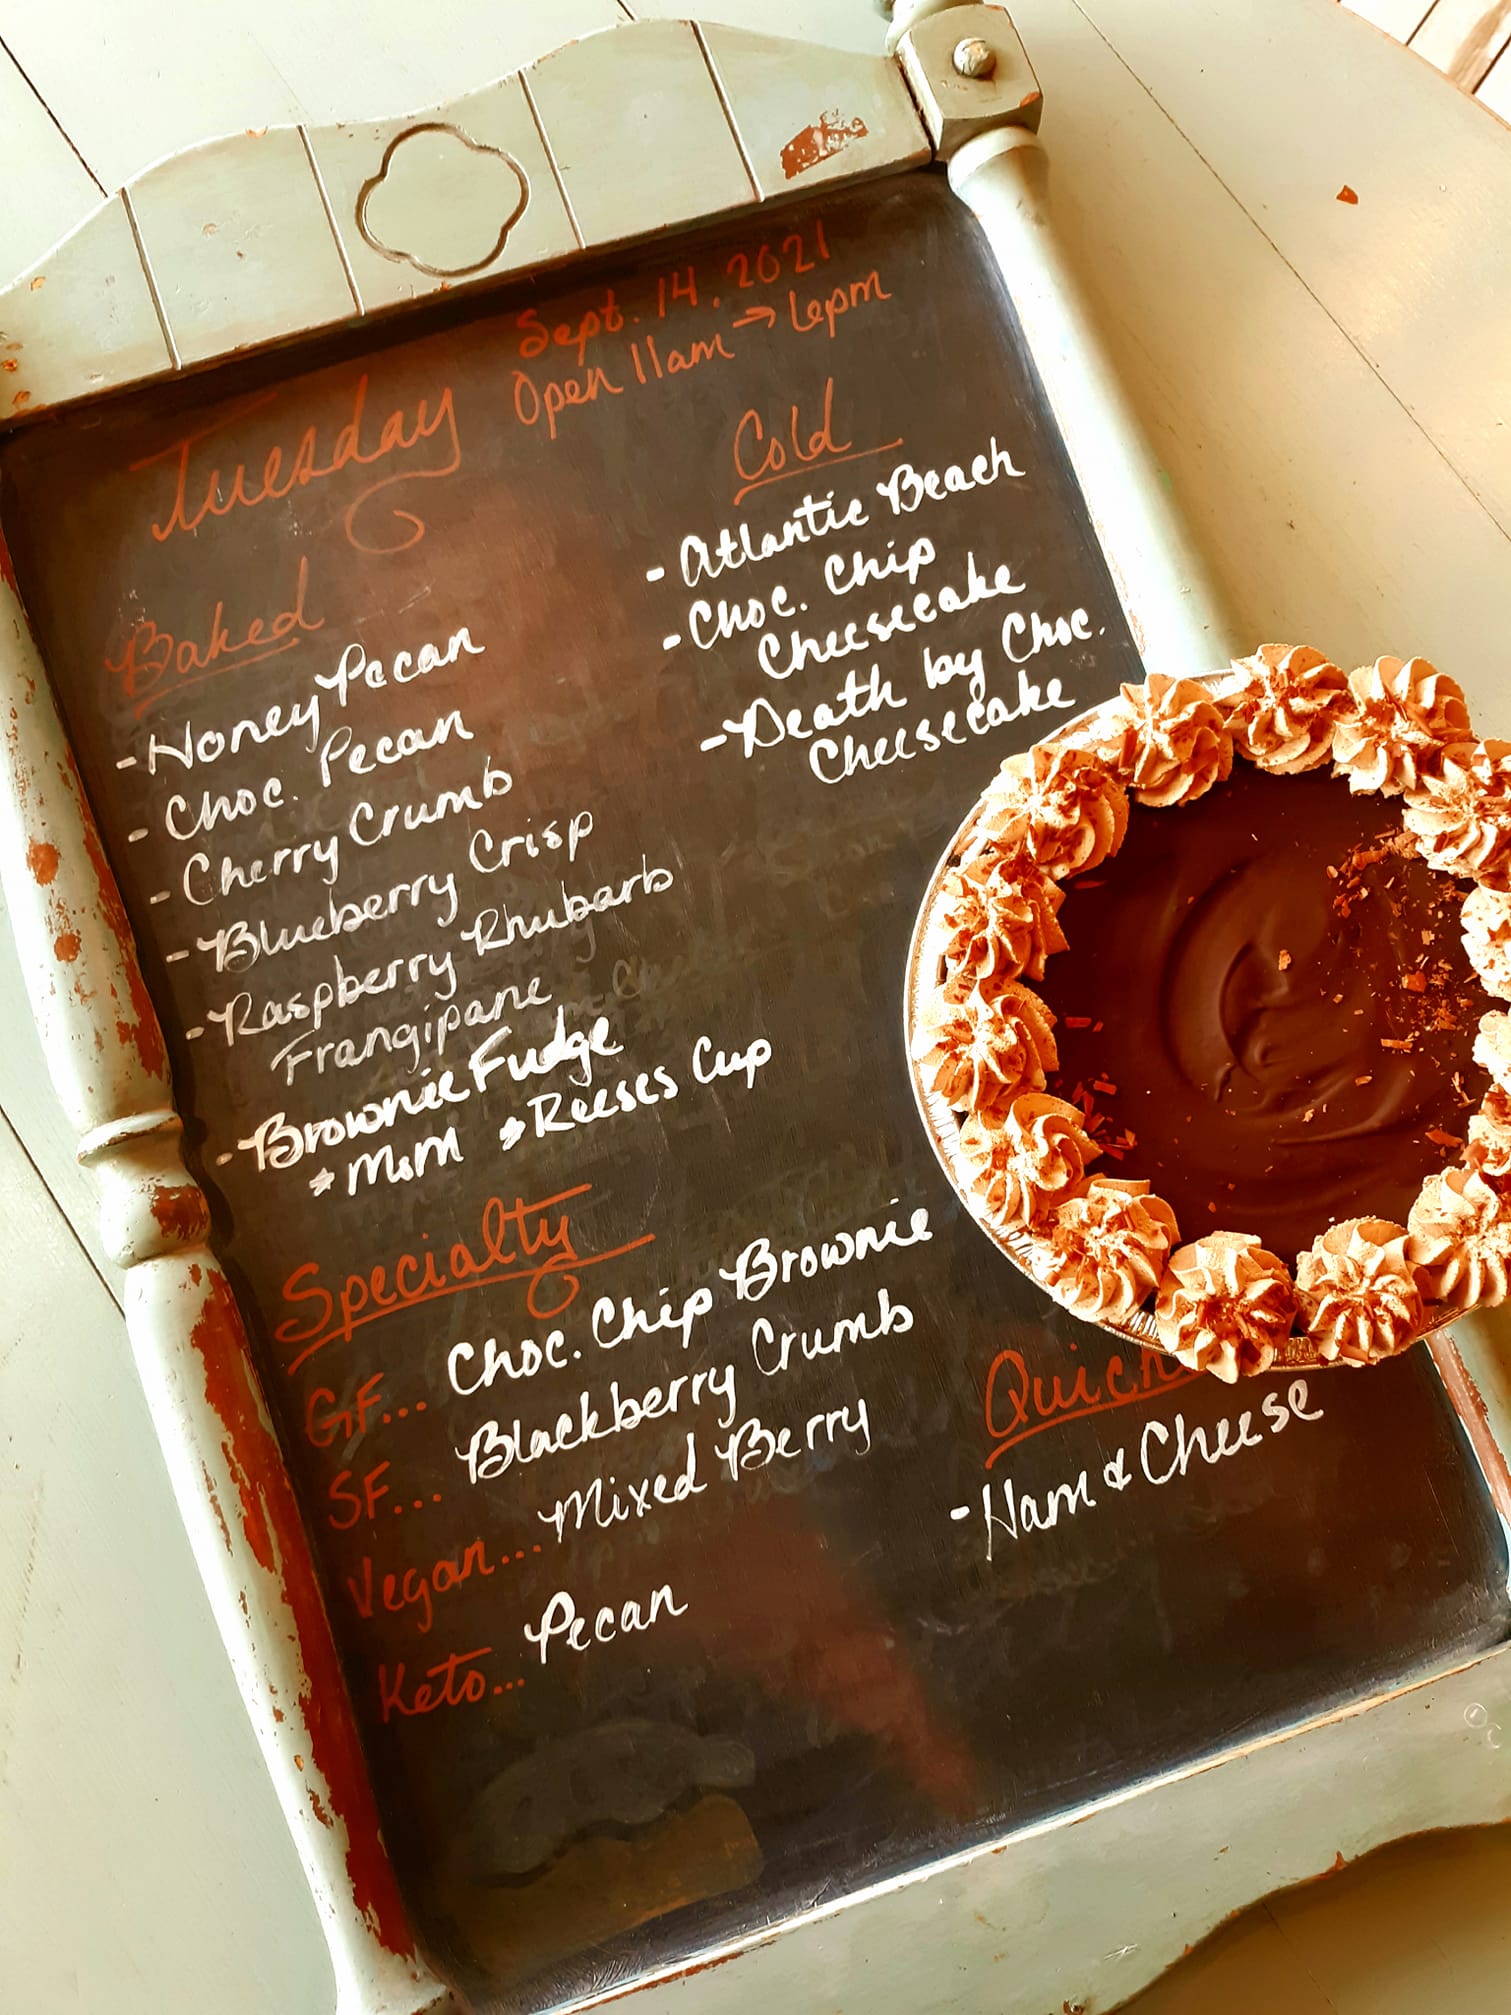 Tuesday
Sept. 14. 2021
Open 11am → 6pm
Baked
- Honey Pecan
- Choc. Pecan
- Cherry Crumb
- Blueberry Crisp
- Raspberry Rhubarb
Frangipane
- Brownie Fudge
* M&M * Reeses Cup
Cold
- Atlantic Beach
- Choc. Chip
Cheesecake
- Death by Choc.
Cheesecake
Specialty
GF... Choc. Chip Brownie
SF... Blackberry Crumb
Vegan... Mixed Berry
Keto... Pecan
Quich
- Ham & Cheese